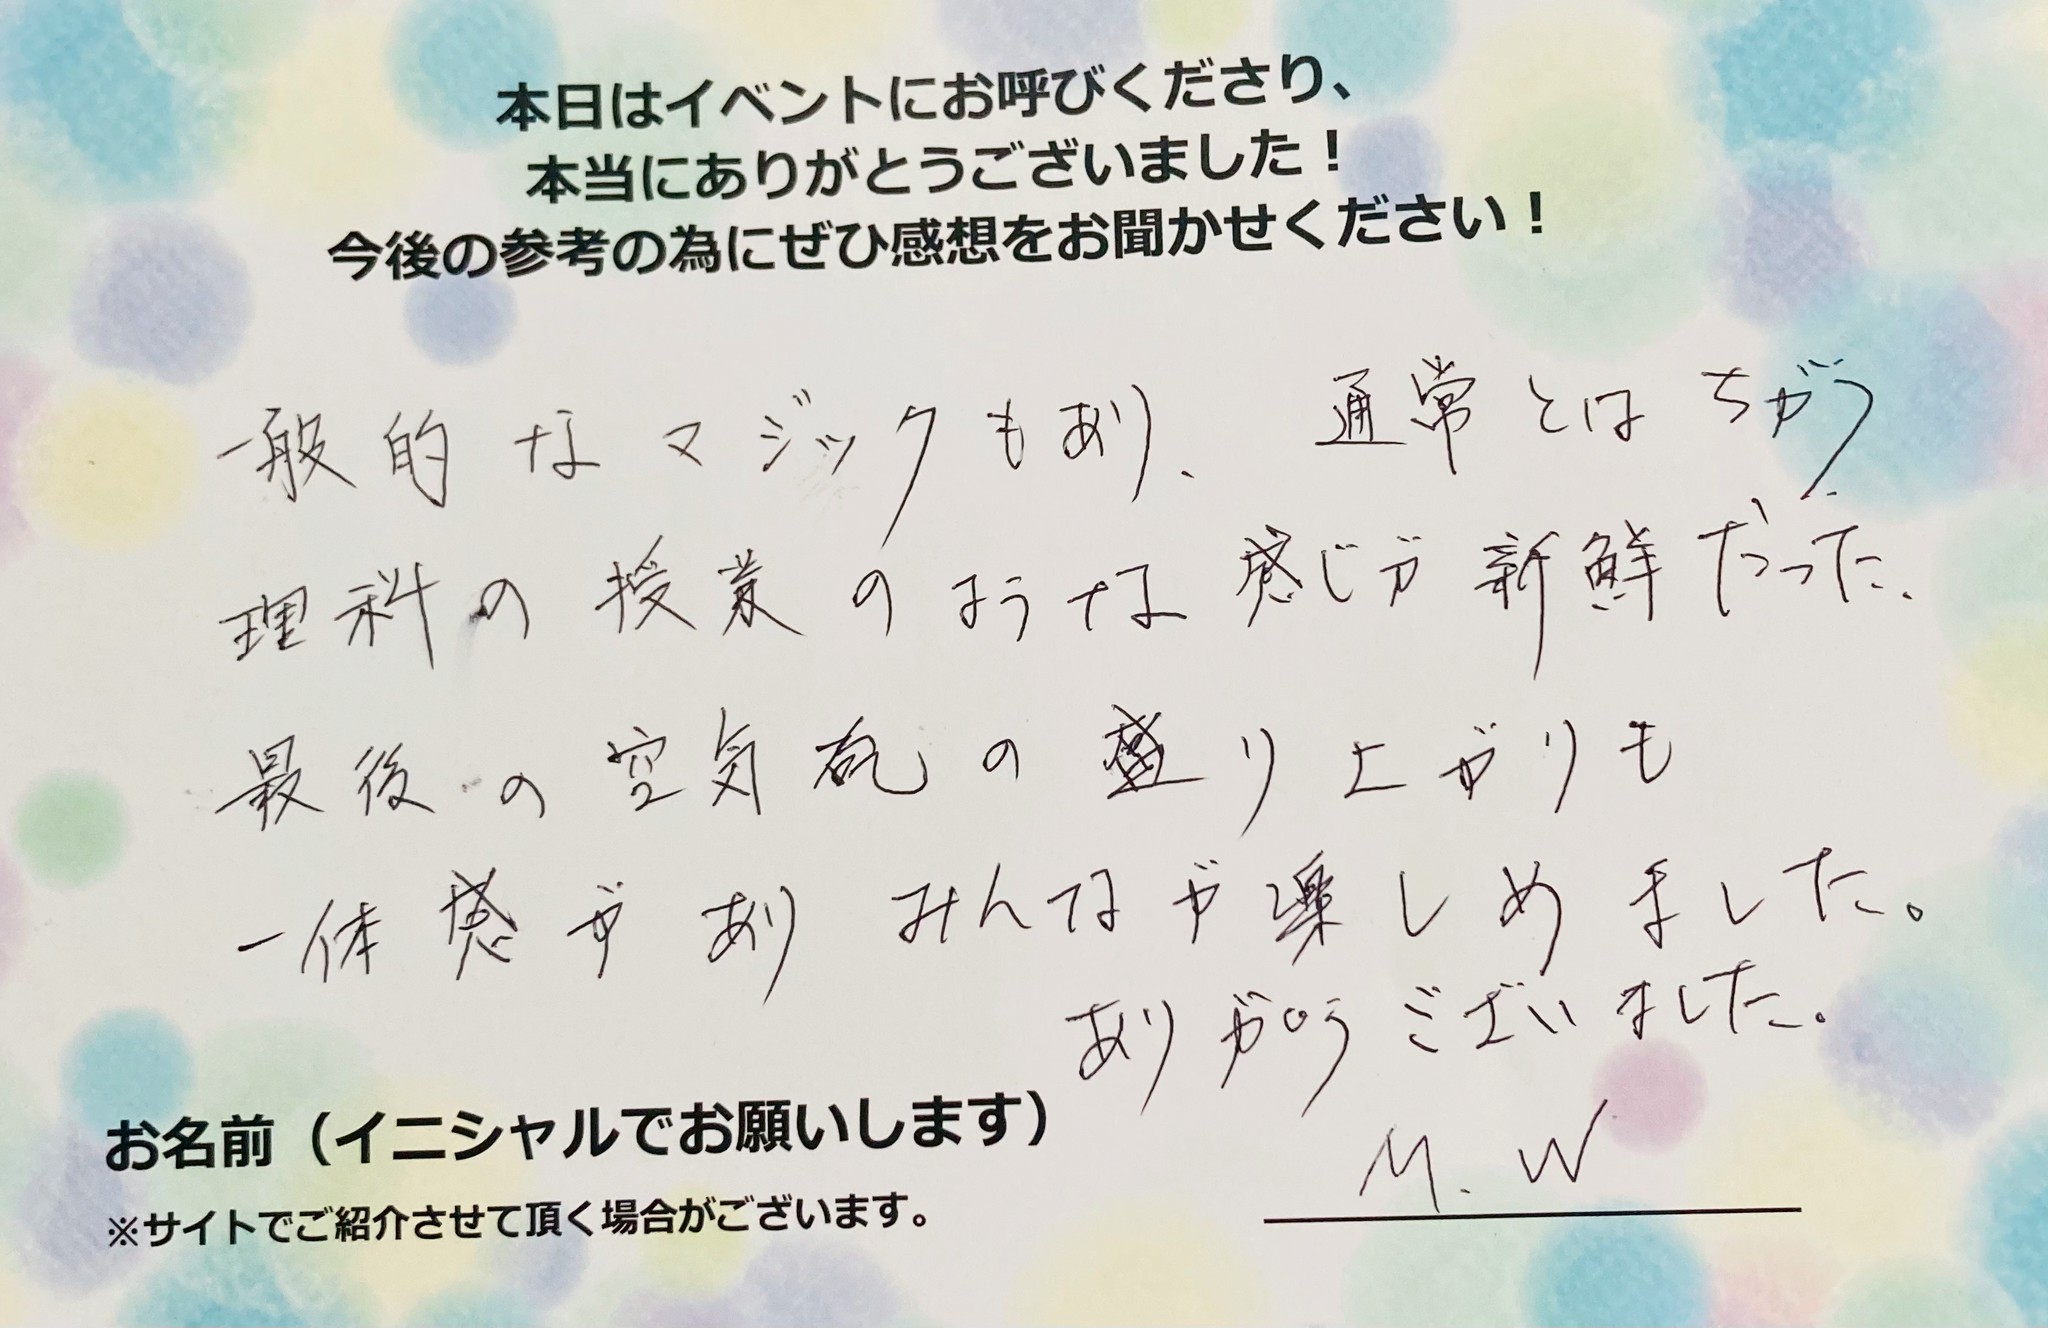 本日はイベントにお呼びくださり、
本当にありがとうございました！
今後の参考の為にぜひ感想をお聞かせください！
一般的なマジックもあり、通常とはちがう
理科の授業のような感じが新鮮だった、
最後の空気砲の盛り上がりも
一体感があり みんなが楽しめました。
ありがとうございました。
お名前（イニシャルでお願いします）
M.W
※サイトでご紹介させて頂く場合がございます。